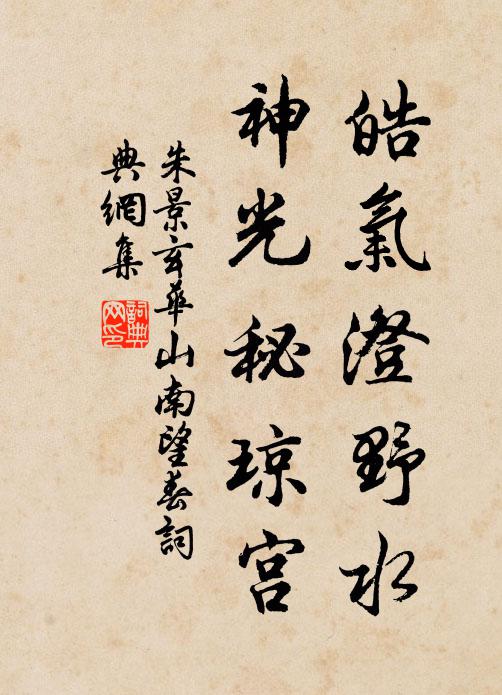 皓氣澄野水
神光秘琼宫
朱景玄華山南望春詞
典網集
詞典网印